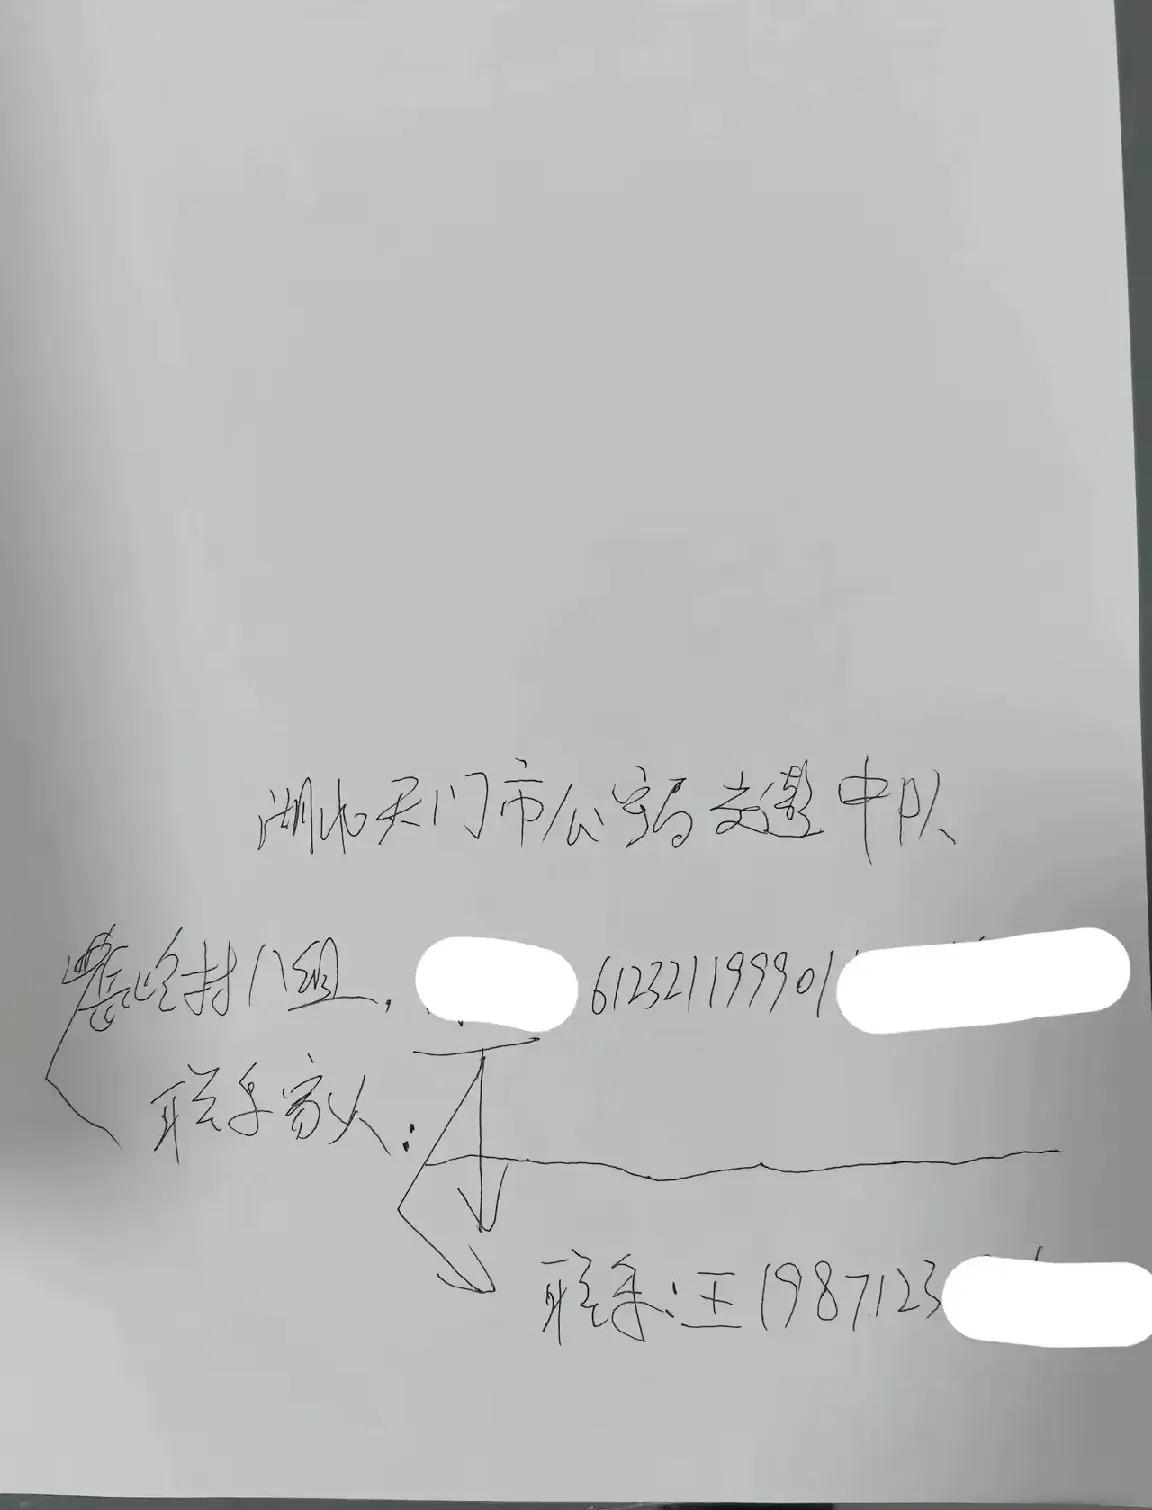 湖北天门市公安局交通中队
村八组, 612321199901
联系家人:
联系:王1987123